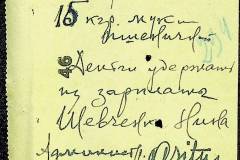 15 кгр. муки
пшеничной
46 Деньги удержать
из зарплаты
Шевченко Нина